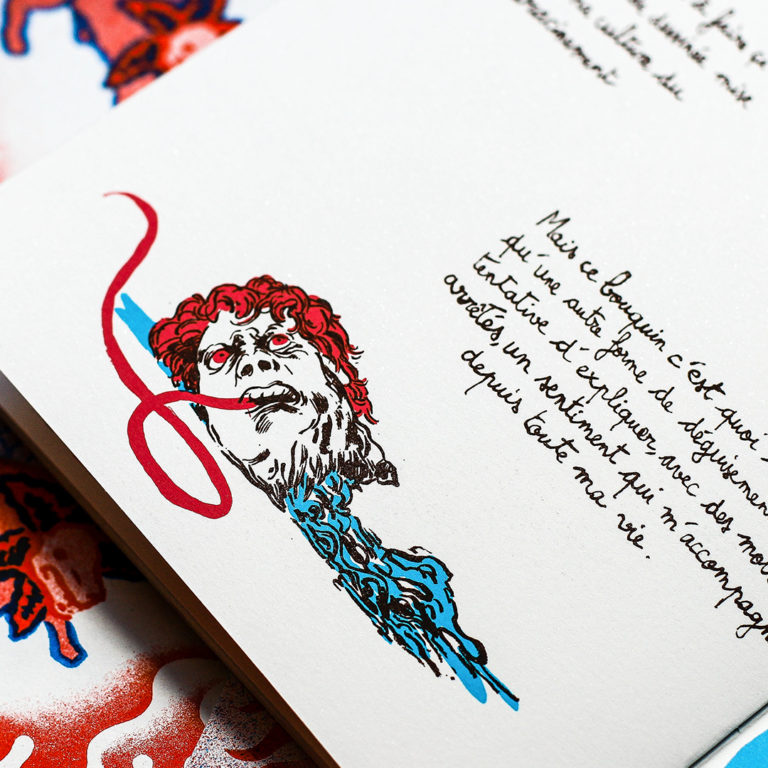 faire ce
dessinée mise
culture du
Mais ce bouquin c'est quoi
qu'une autre forme de déguisement
tentative d'expliquer, avec des mots
arrêtés, un sentiment qui m'accompagn
depuis toute ma vie.